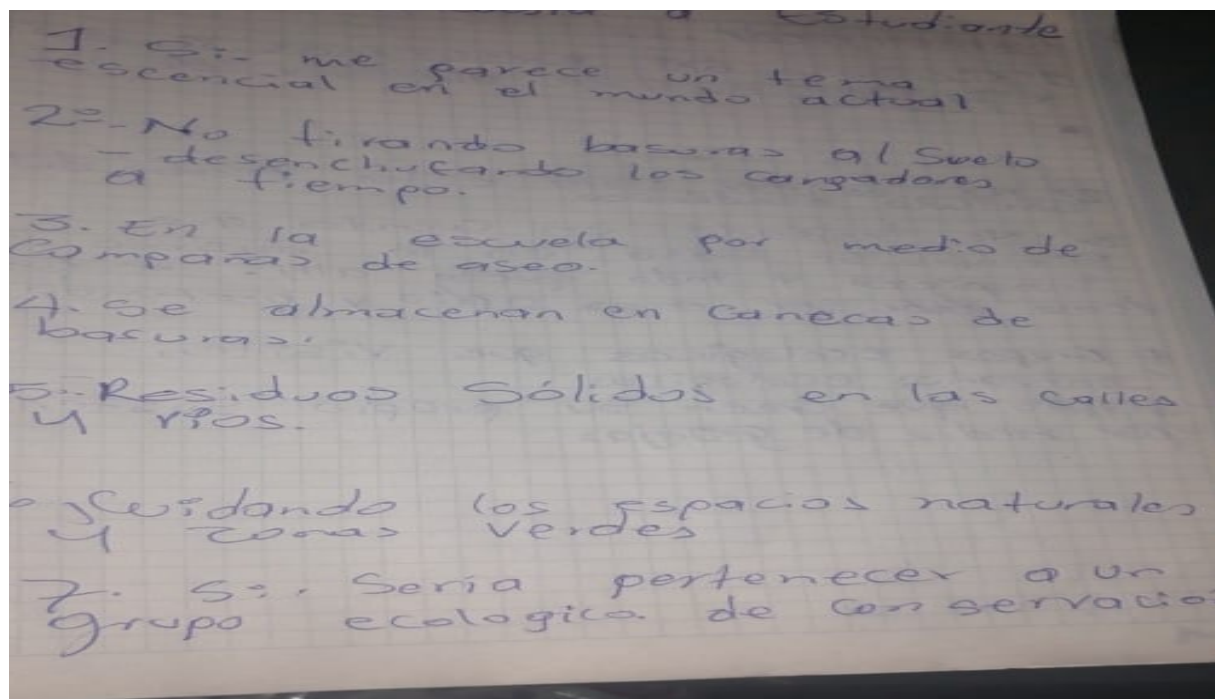 a Estudiante
1. Si- me parece un tema
escencial en el mundo actual
2º- No tirando basuras al Suelo
- desenchufando los cargadores
a tiempo.
3. En la escuela por medio de
Campañas de aseo.
4. Se almacenan en Canecas de
basuras.
5.- Residuos Sólidos en las calles
y ríos.
Cuidando los espacios naturales
y zonas verdes
7. Si. Sería pertenecer a un
grupo ecologico. de conservacio